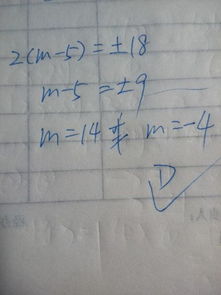 2(m-5)=±18
m-5=±9
m=14或 m=-4
D